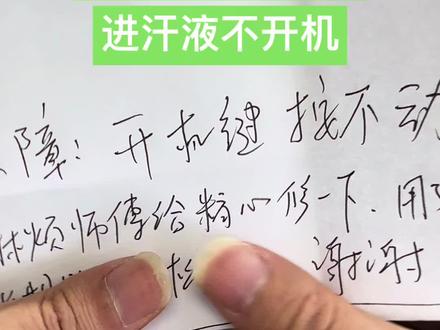 进汗液不开机
障：开机键按不动
烦师傅给精心修一下．用
谢谢